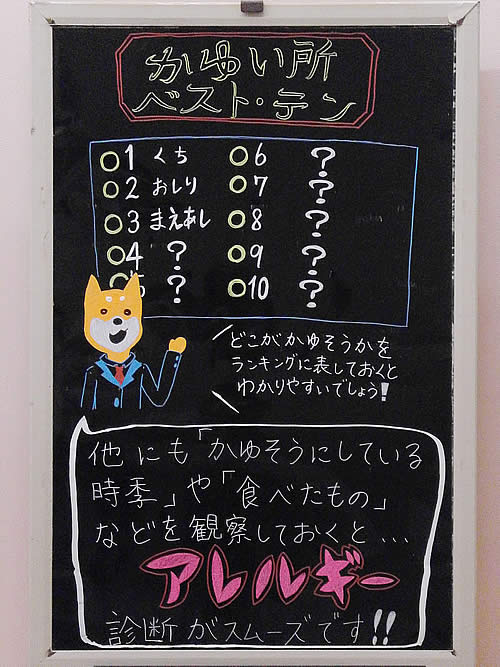 かゆい所
ベスト・テン
1 くち
2 おしり
3 まえあし
4 ?
5 ?
6 ?
7 ?
8 ?
9 ?
10 ?
どこがかゆそうかを
ランキングに表しておくと
わかりやすいでしょう!
他にも「かゆそうにしている
時季」や「食べたもの」
などを観察しておくと...
アレルギー
診断がスムーズです!!